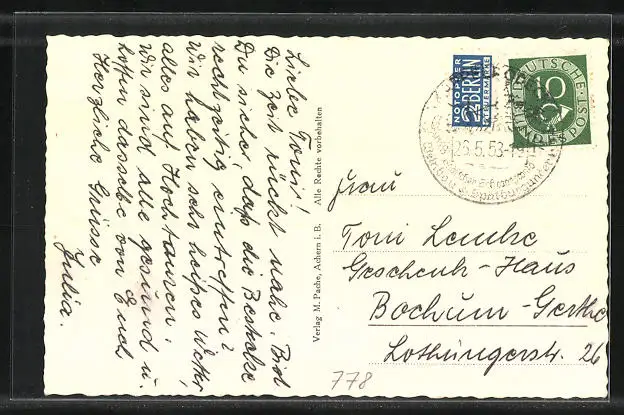 Liebe Toni!
Die Zeit rückt nahe. Bist
Du sicher daß die Bestecke
rechtzeitig eintreffen?
Wir haben sehr heißes Wetter,
alles auf Hochtouren.
Wir sind alle gesund u.
hoffen dasselbe von Euch
Herzliche Grüsse
Julia.
Verlag M. Pache, Achern i. B. Alle Rechte vorbehalten
NOTOPFER
2 BERLIN
STEUERMARKE
DEUTSCHE
BUNDESPOST
26.5.53
Frau
Toni Lembke
Geschenk-Haus
Bochum-Gerthe
Lothringerstr. 26
778